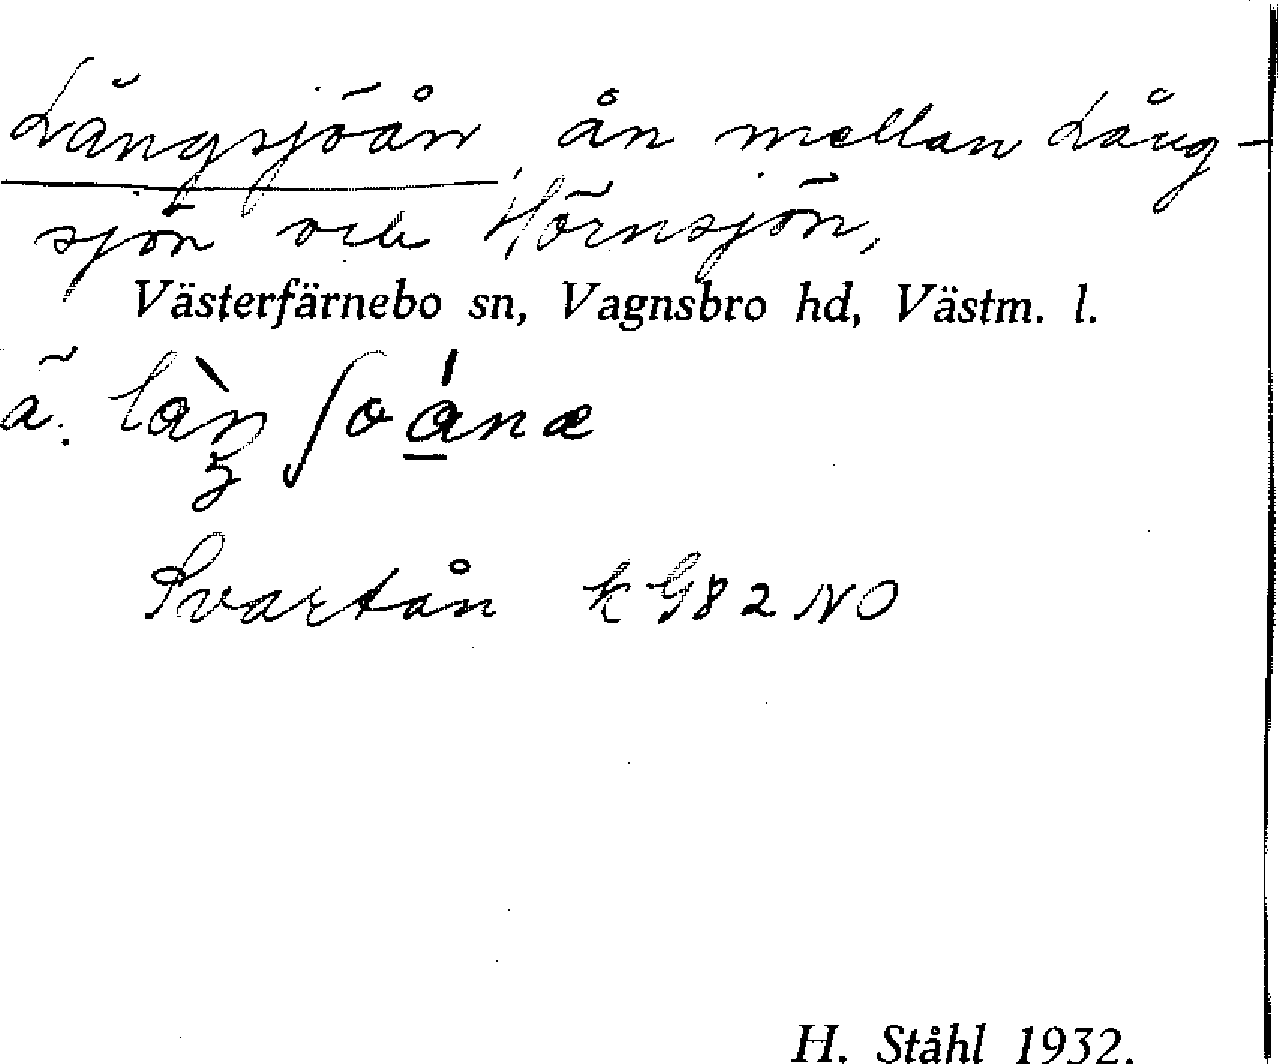 Långsjöån, ån mellan Lång-
sjön och Hörnsjön,
Västerfärnebo sn, Vagnsbro hd, Västm. l.
Svartån k G82 NO
H. Ståhl 1932.